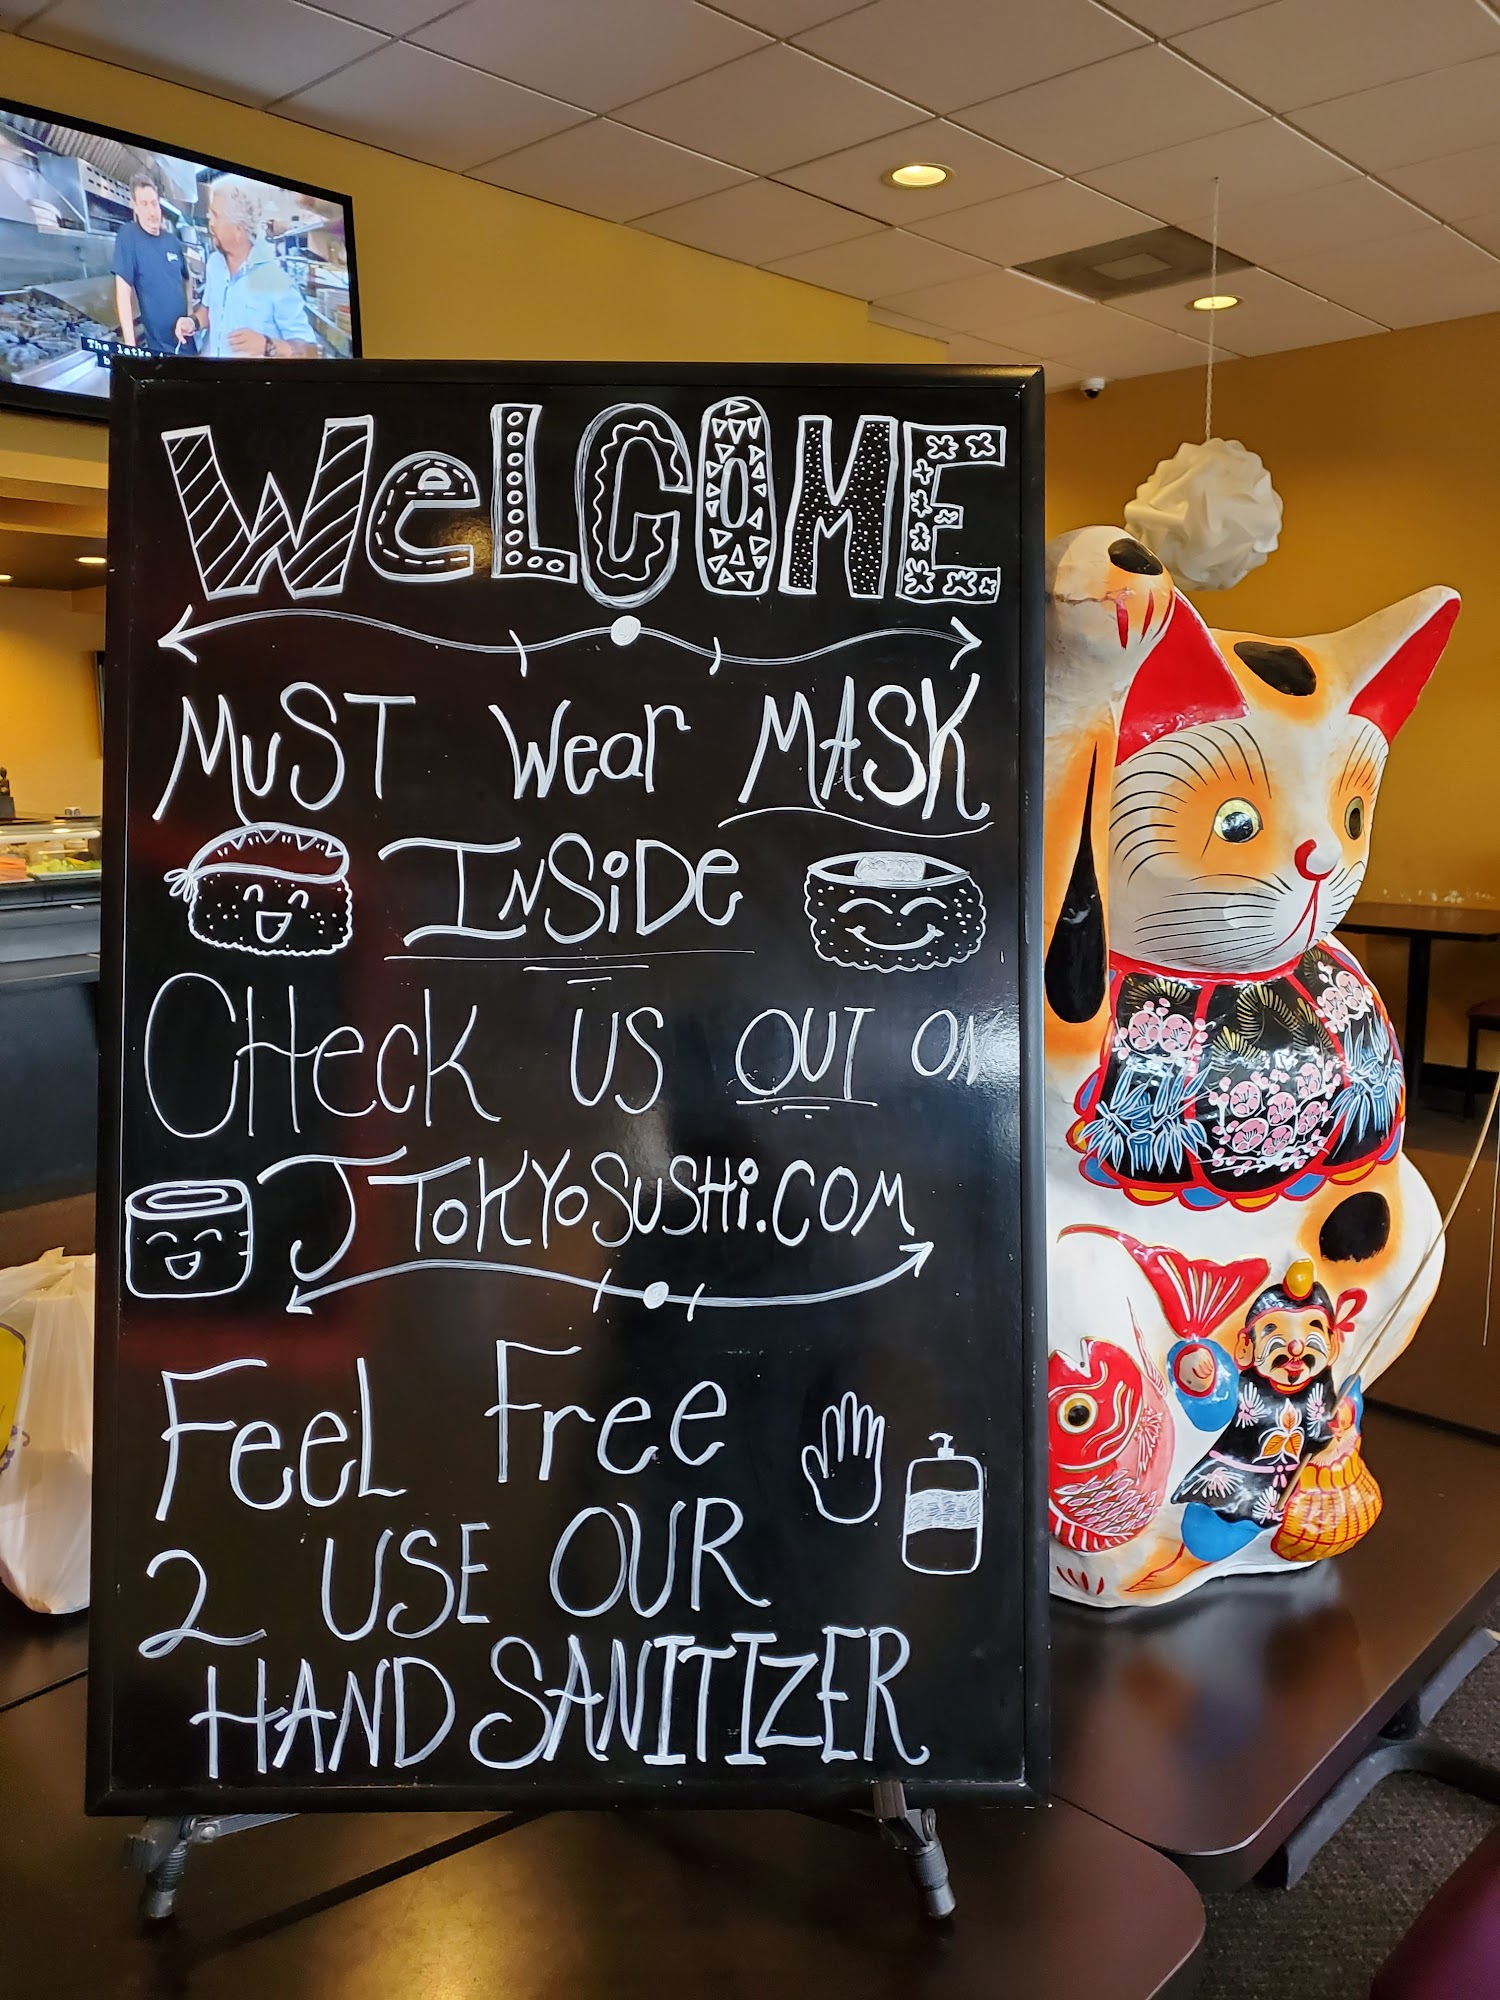 The latke
WeLCOME
MuST Wear MASK
INSiDe
CHecK US OUT ON
JTOKYOSUSHi.COM
FeeL Free
2 USE OUR
HAND SANITIZER